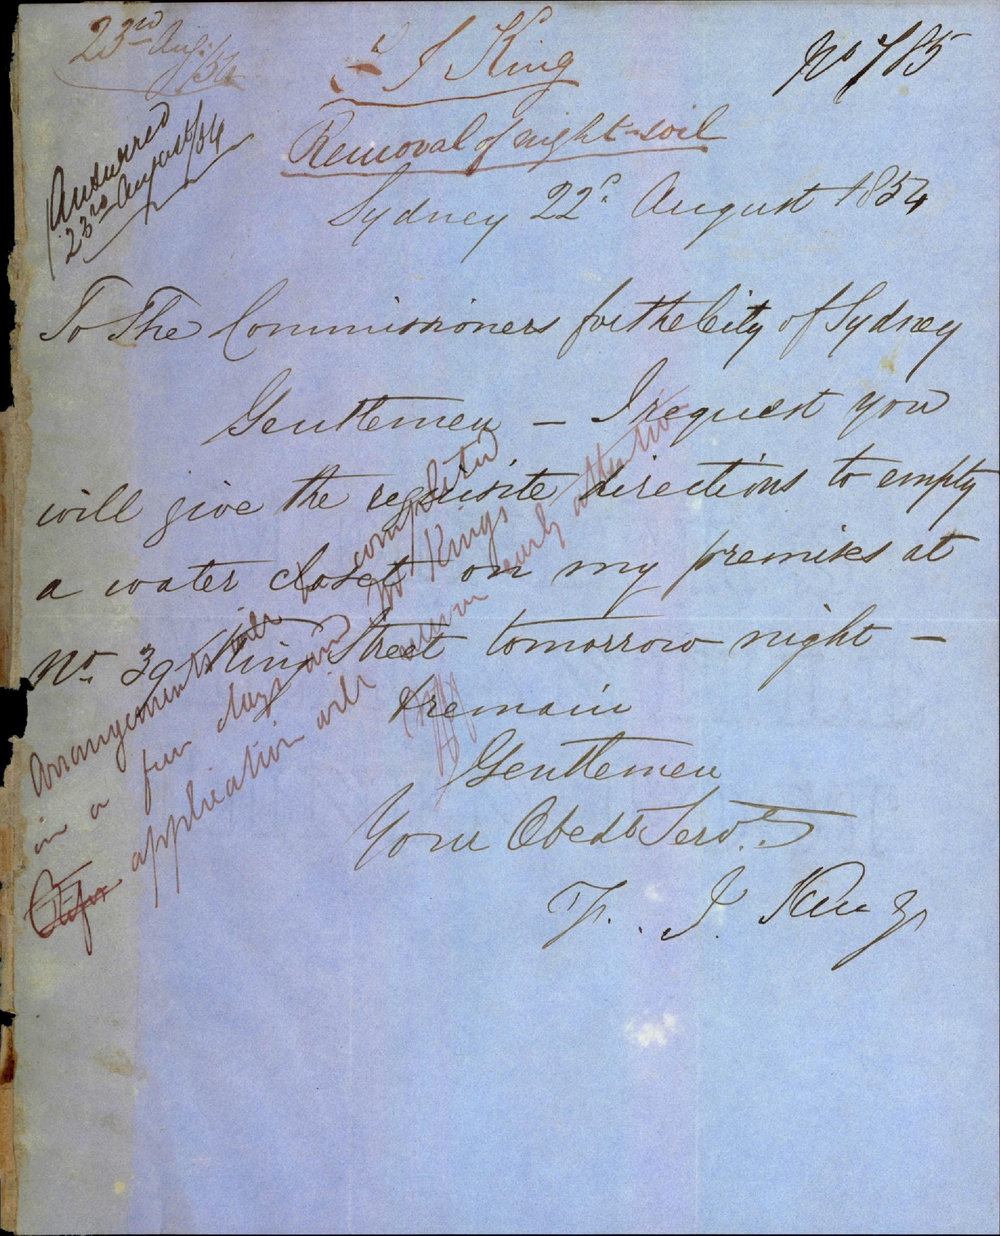 23rd Aug/54
F J King
No 785
Removal of night-soil
Answered
23rd August/54
Sydney 22d August 1854
To The Commissioners for the City of Sydney
Gentlemen — I request you
will give the requisite directions to empty
a water closet on my premises at
No. 39 King Street tomorrow night —
I remain
Gentlemen
Your Obedt Servt.
F. J. King
Arrangements will be completed
in a few days and Mr Kings
application will receive early attention